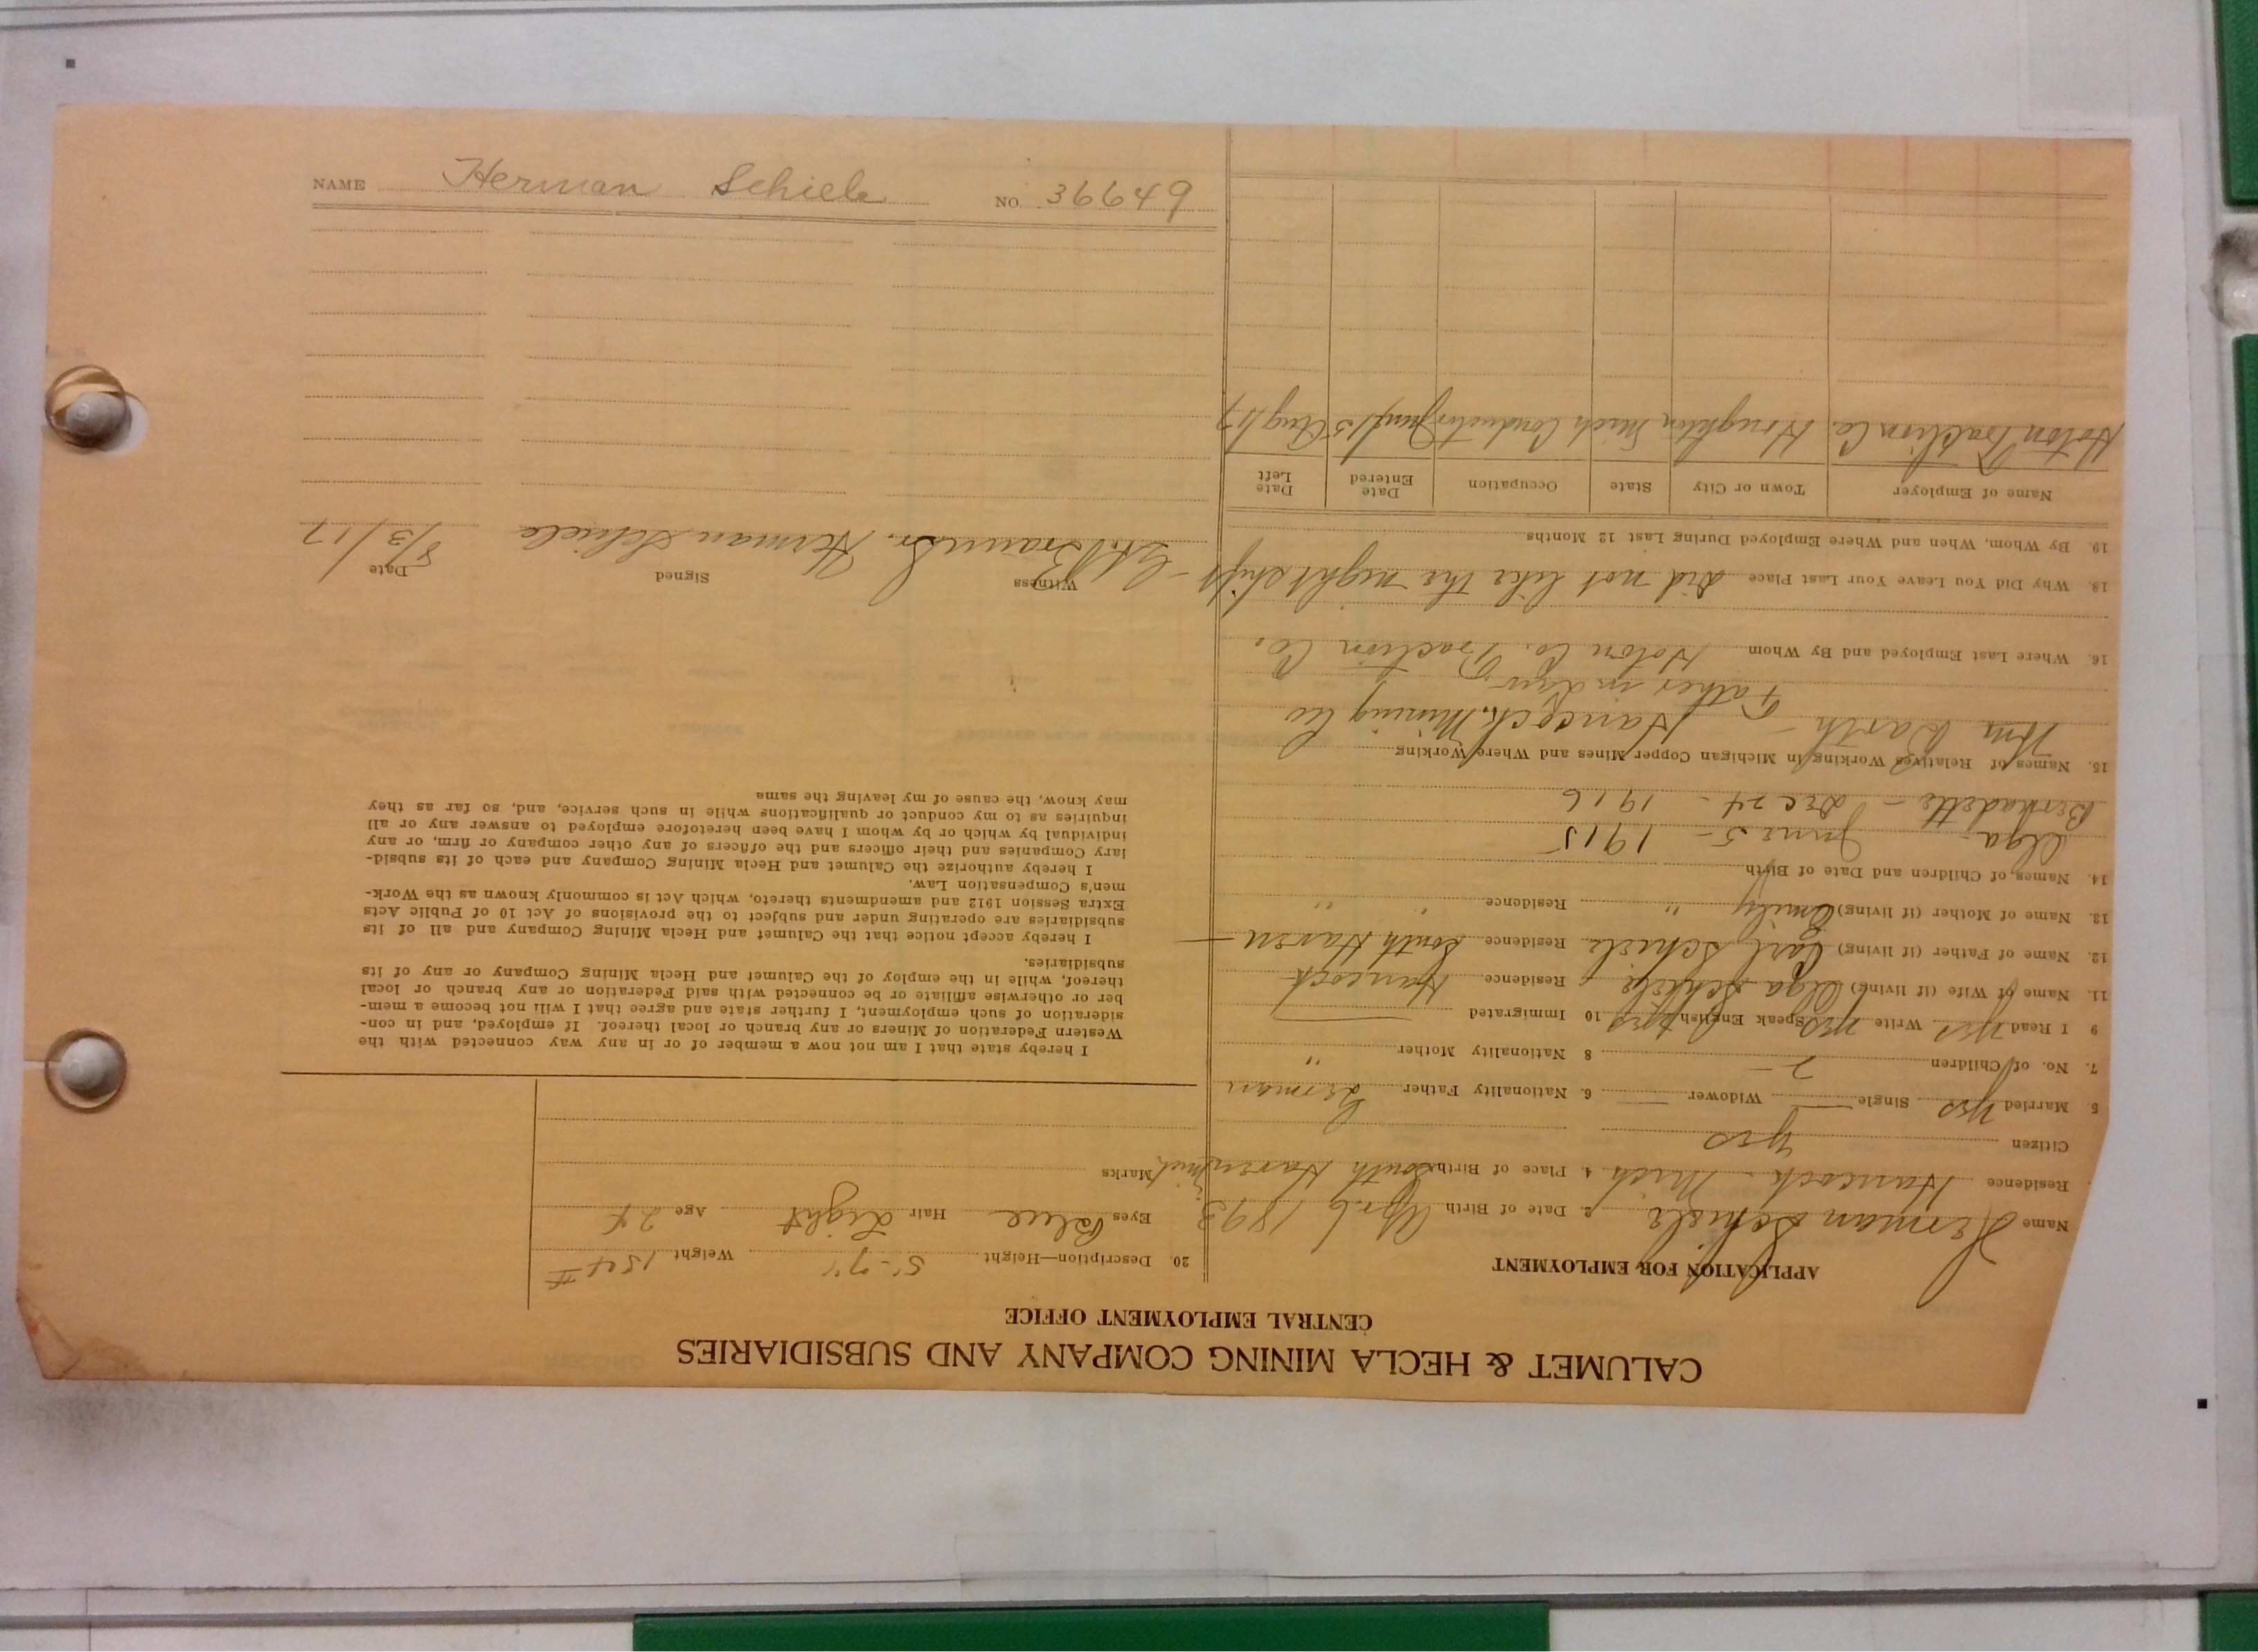 CALUMET & HECLA MINING COMPANY AND SUBSIDIARIES
CENTRAL EMPLOYMENT OFFICE
APPLICATION FOR EMPLOYMENT
Name Herman Schiele 2. Date of Birth Apr 6 1893
Residence Hancock - Mich 4. Place of Birth South Haven, Mich
Citizen yes
5 Married yes Single — Widower — 6. Nationality Father German
7. No. of Children 2 — 8 Nationality Mother "
9 I Read yes Write yes Speak English yes 10 Immigrated —
11. Name of Wife (if living) Olga Schiele Residence Hancock
12. Name of Father (if living) Carl Schiele Residence South Haven —
13. Name of Mother (if living) Emily " Residence " "
14. Names of Children and Date of Birth
Olga - June 5 - 1915
Bernadette - Dec 24 - 1916
15. Names of Relatives Working in Michigan Copper Mines and Where Working
Wm Barth - Hancock Mining Co
Father in Law
16. Where Last Employed and By Whom Hoton Co. Traction Co.
18. Why Did You Leave Your Last Place Did not like the night shift -
19. By Whom, When and Where Employed During Last 12 Months
Name of Employer Town or City State Occupation Date Entered Date Left
Hoton Traction Co. Houghton Mich Conductor 15 Aug 17
20. Description—Height 5'-7" Weight 154#
Eyes Blue Hair Light Age 24
Marks
I hereby state that I am not now a member of or in any way connected with the
Western Federation of Miners or any branch or local thereof. If employed, and in con-
sideration of such employment, I further state and agree that I will not become a mem-
ber or otherwise affiliate or be connected with said Federation or any branch or local
thereof, while in the employ of the Calumet and Hecla Mining Company or any of its
subsidiaries.
I hereby accept notice that the Calumet and Hecla Mining Company and all of its
subsidiaries are operating under and subject to the provisions of Act 10 of Public Acts
Extra Session 1912 and amendments thereto, which Act is commonly known as the Work-
men's Compensation Law.
I hereby authorize the Calumet and Hecla Mining Company and each of its subsid-
iary Companies and their officers and the officers of any other company or firm, or any
individual by which or by whom I have been heretofore employed to answer any or all
inquiries as to my conduct or qualifications while in such service, and, so far as they
may know, the cause of my leaving the same
Witness Signed Date
Herman Schiele 8/3/17
NAME Herman Schiele NO. 36649